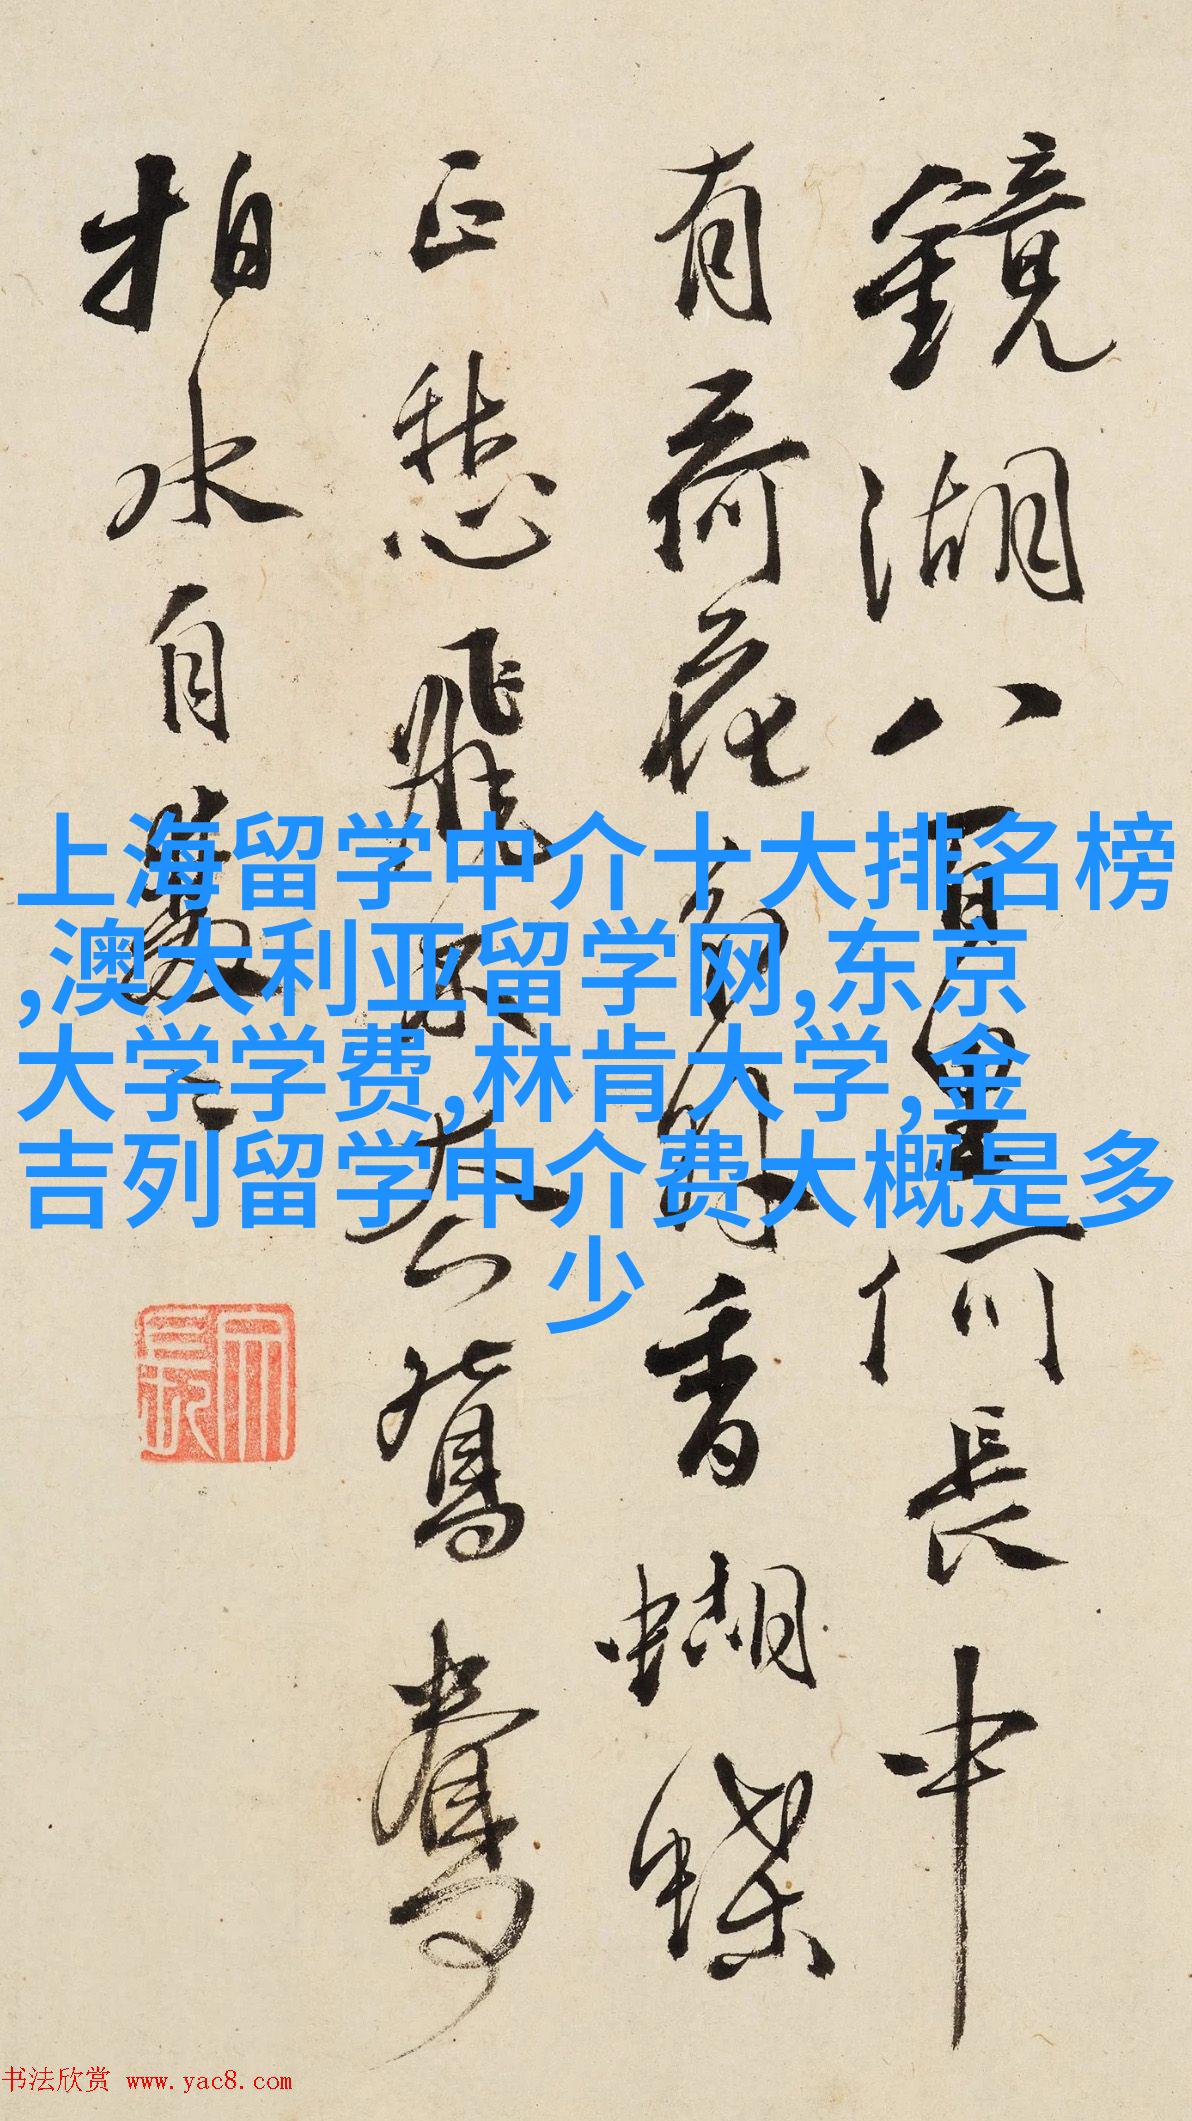 鏡湖八百里何長中
有荷花分外香蝴蝶
正愁飛不去鴛鴦
拍水自雙〻
上海留学中介十大排名榜
,澳大利亚留学网,东京
大学学费,林肯大学,金
吉列留学中介费大概是多
少
书法欣赏 www.yac8.com